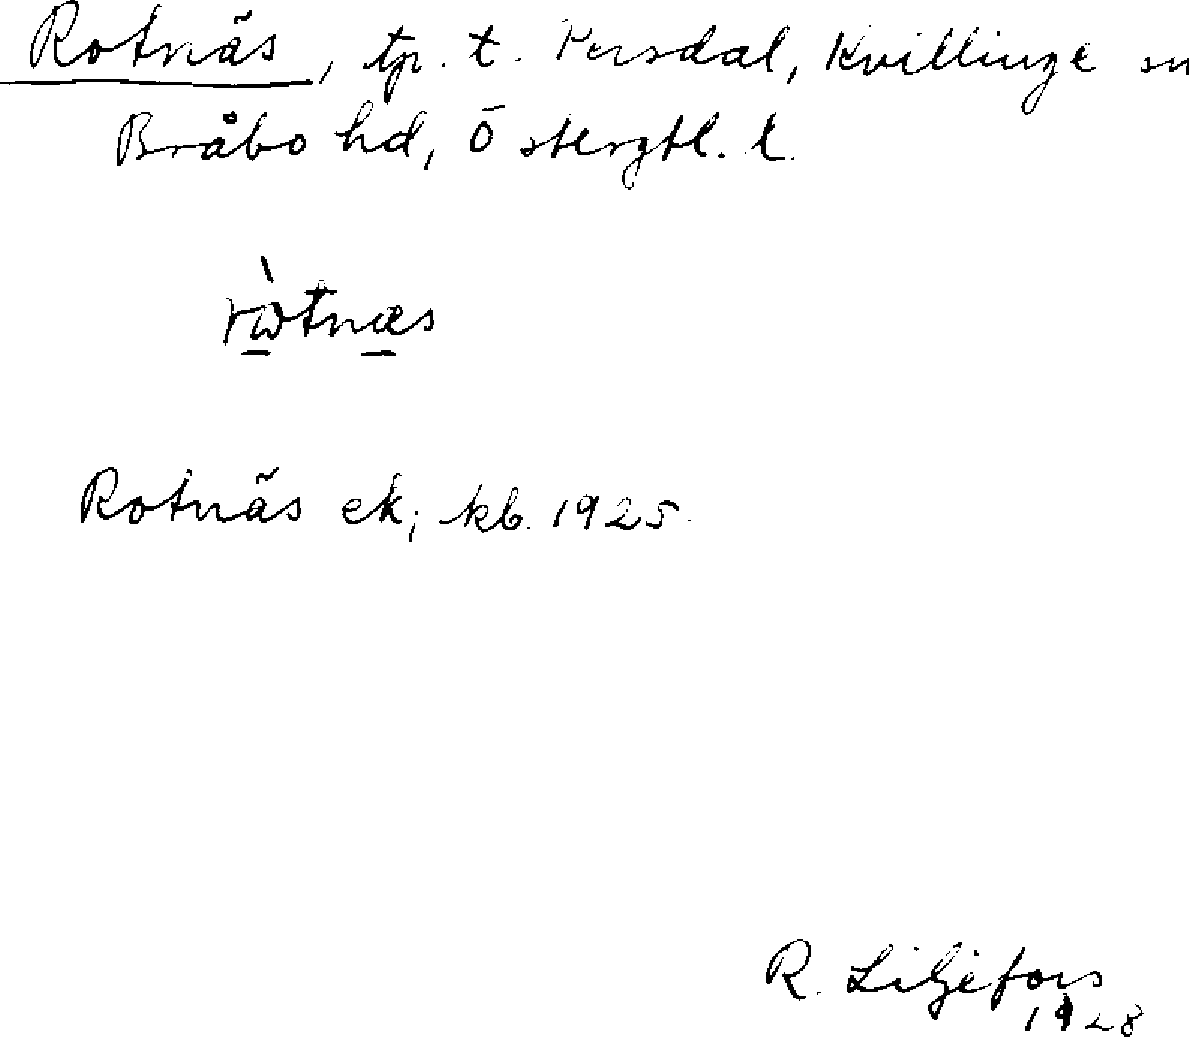 Rotnäs, tp. t. Persdal, Kvillinge sn
Bråbo hd, Östergtl. l.
rὼtnæs
Rotnäs ek; kb. 1925.
R. Liljefors
1928